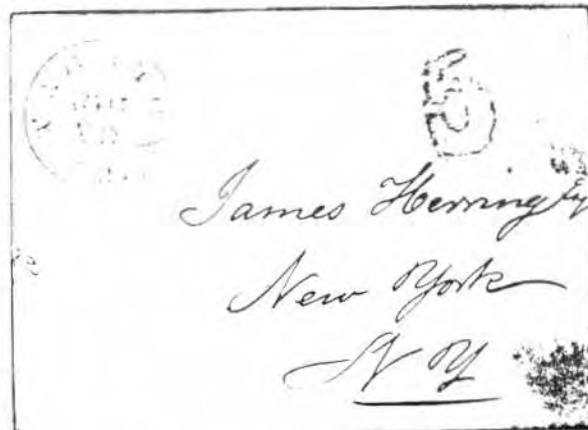 5
James Herring Esq
New York
N Y